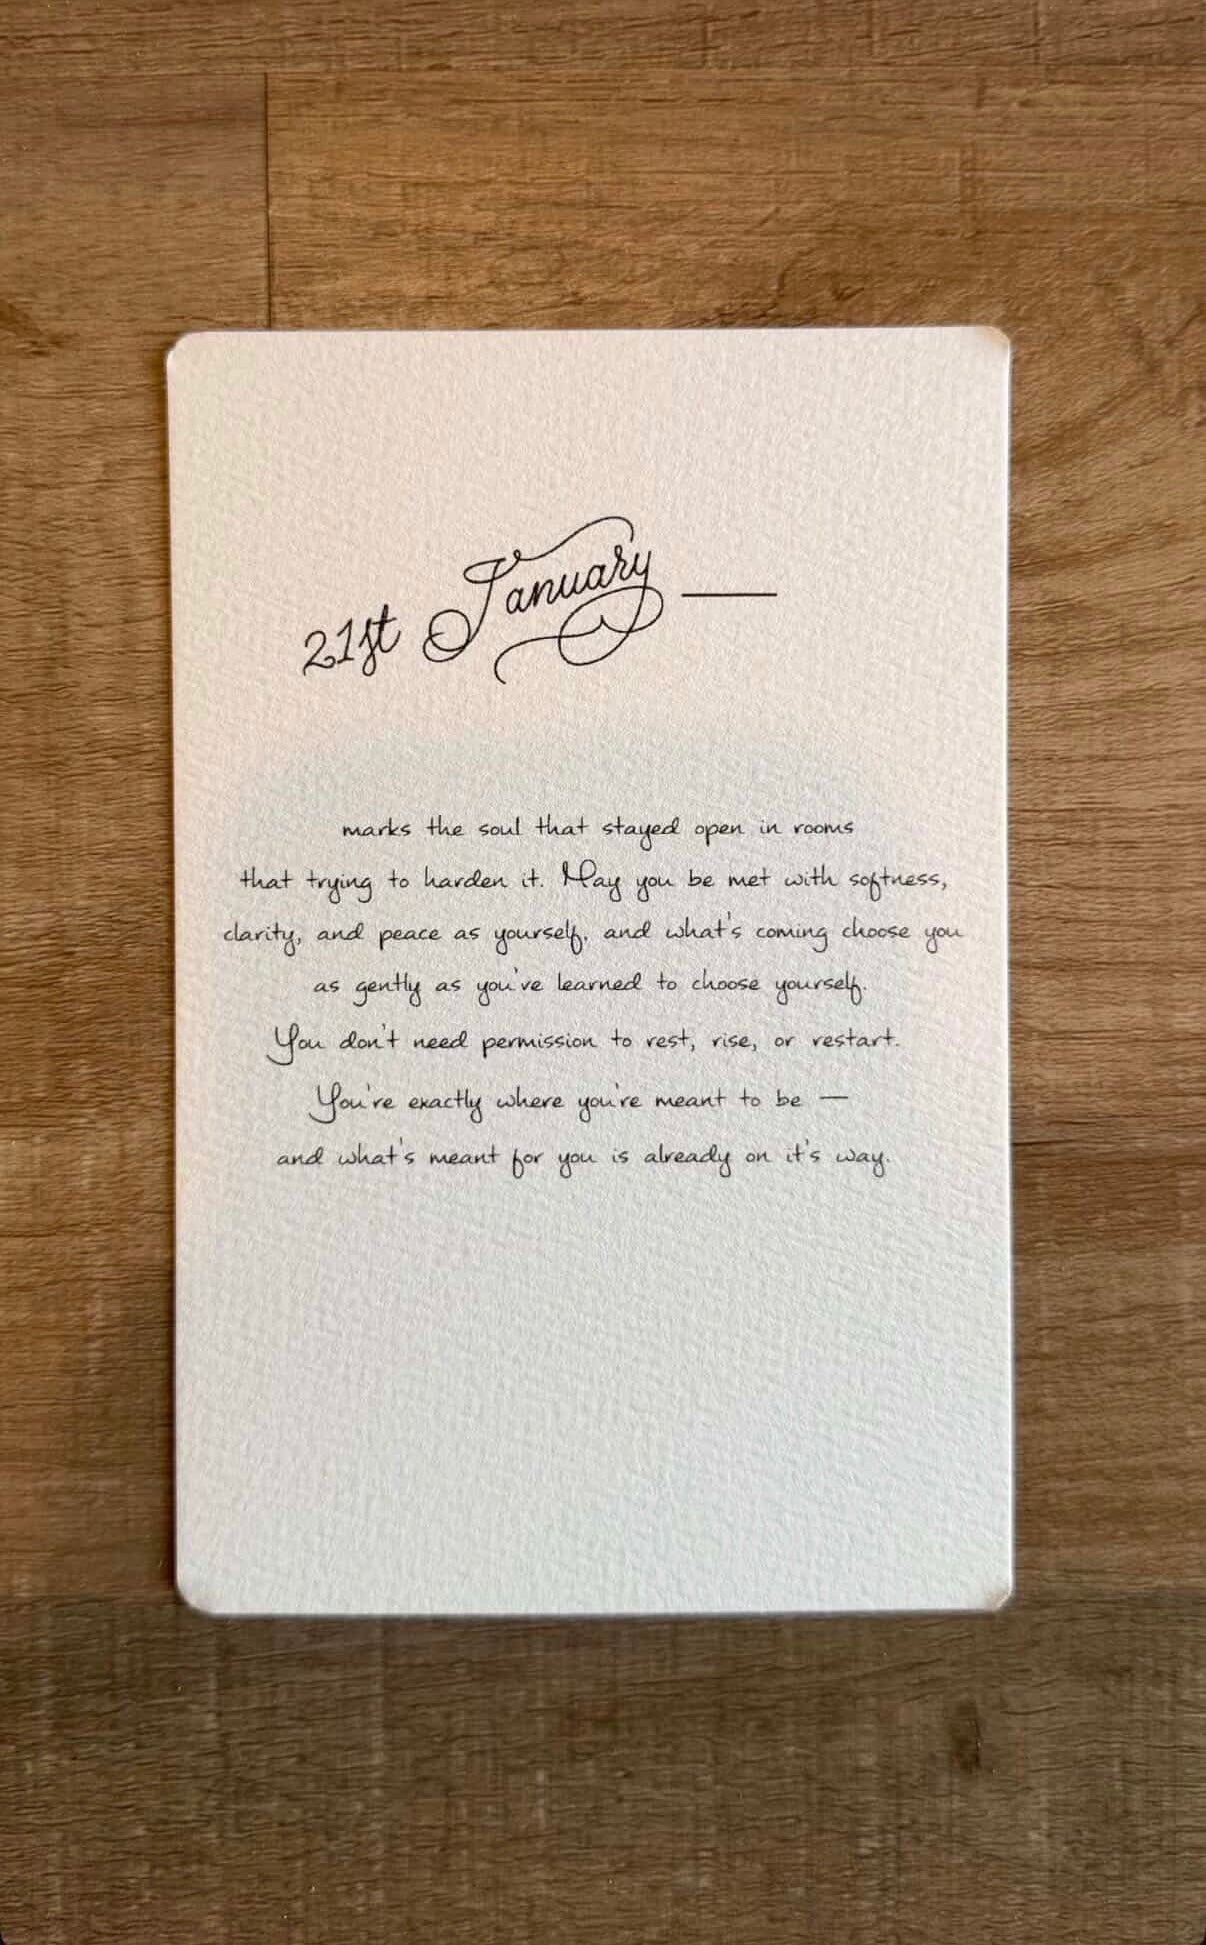 21st January —
marks the soul that stayed open in rooms
that trying to harden it. May you be met with softness,
clarity, and peace as yourself, and what's coming choose you
as gently as you've learned to choose yourself.
You don't need permission to rest, rise, or restart.
You're exactly where you're meant to be —
and what's meant for you is already on it's way.